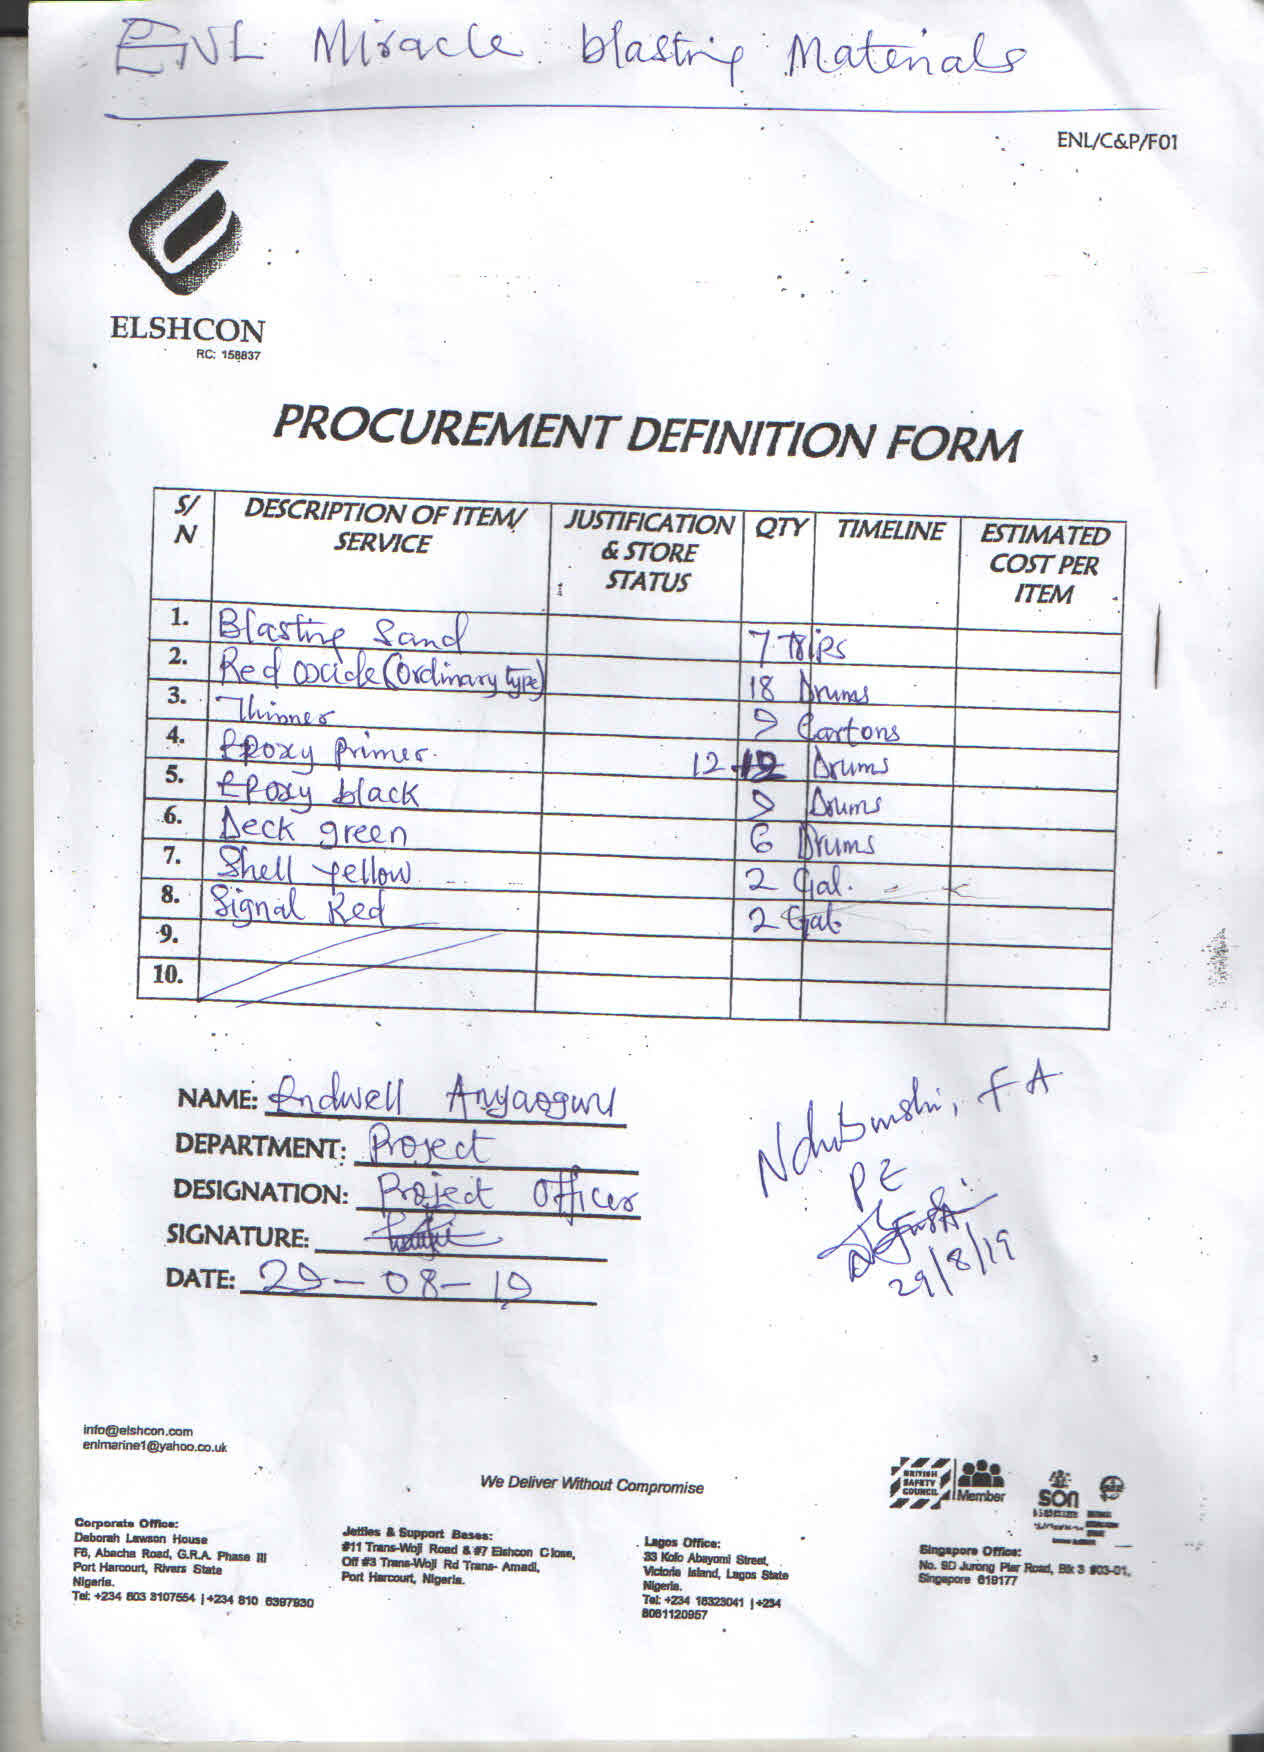 ENL Miracle blasting Materials
ENL/C&P/F01
ELSHCON
RC: 158837
PROCUREMENT DEFINITION FORM
S/N DESCRIPTION OF ITEM/ SERVICE JUSTIFICATION & STORE STATUS QTY TIMELINE ESTIMATED COST PER ITEM
1. Blasting Sand 7 Trips
2. Red oxide (ordinary type) 18 Drums
3. Thinner 9 Cartons
4. Epoxy primer. 12 Drums
5. Epoxy black 9 Drums
6. Deck green 6 Drums
7. Shell yellow 2 Gal.
8. Signal Red 2 Gal.
9.
10.
NAME: Endwell Anyaogwu
DEPARTMENT: Project
DESIGNATION: Project Officer
SIGNATURE:
DATE: 29-08-19
FA
PE
29/8/19
info@elshcon.com
enlmarine1@yahoo.co.uk
We Deliver Without Compromise
BRITISH SAFETY COUNCIL Member
SON
Corporate Office:
Deborah Lawson House
F6, Abacha Road, G.R.A. Phase III
Port Harcourt, Rivers State
Nigeria.
Tel: +234 803 3107554 | +234 810 6397930
Jetties & Support Bases:
#11 Trans-Woji Road & #7 Elshcon Close,
Off #3 Trans-Woji Rd Trans- Amadi,
Port Harcourt, Nigeria.
Lagos Office:
33 Kofo Abayomi Street,
Victoria Island, Lagos State
Nigeria.
Tel: +234 16323041 | +234
8061120957
Singapore Office:
No. 9D Jurong Pier Road, Blk 3 #03-01,
Singapore 619177